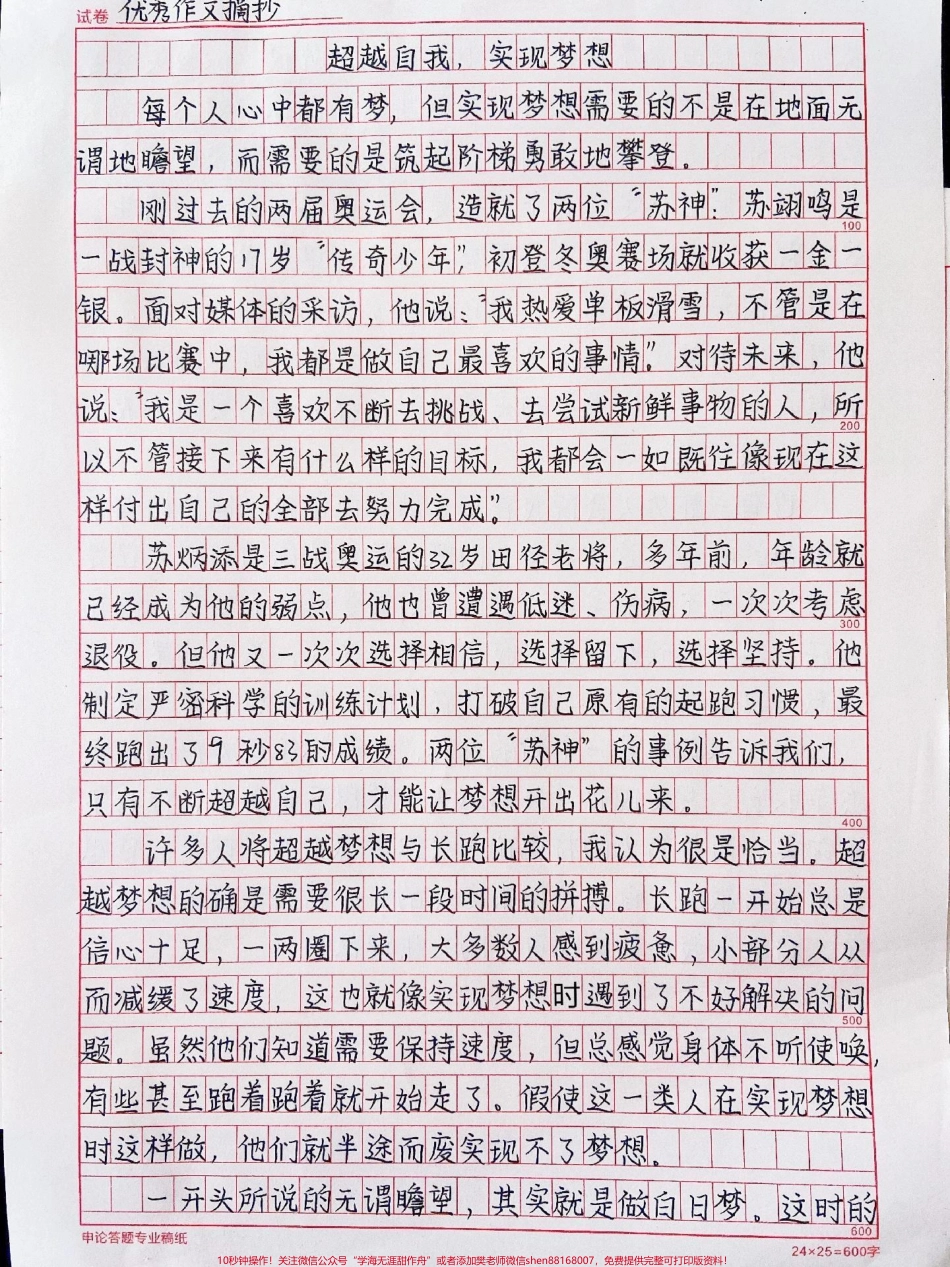 试卷 优秀作文摘抄
超越自我，实现梦想
每个人心中都有梦，但实现梦想需要的不是在地面无
谓地瞻望，而需要的是筑起阶梯勇敢地攀登。
刚过去的两届奥运会，造就了两位“苏神”：苏翊鸣是
100
一战封神的17岁“传奇少年”，初登冬奥赛场就收获一金一
银。面对媒体的采访，他说：“我热爱单板滑雪，不管是在
哪场比赛中，我都是做自己最喜欢的事情”。对待未来，他
说：“我是一个喜欢不断去挑战、去尝试新鲜事物的人，所
200
以不管接下来有什么样的目标，我都会一如既往像现在这
样付出自己的全部去努力完成”。
苏炳添是三战奥运的32岁田径老将，多年前，年龄就
已经成为他的弱点，他也曾遭遇低迷、伤病，一次次考虑
300
退役。但他又一次次选择相信，选择留下，选择坚持。他
制定严密科学的训练计划，打破自己原有的起跑习惯，最
终跑出了9秒83的成绩。两位“苏神”的事例告诉我们，
只有不断超越自己，才能让梦想开出花儿来。
400
许多人将超越梦想与长跑比较，我认为很是恰当。超
越梦想的确是需要很长一段时间的拼搏。长跑一开始总是
信心十足，一两圈下来，大多数人感到疲惫，小部分人从
而减缓了速度，这也就像实现梦想时遇到了不好解决的问
500
题。虽然他们知道需要保持速度，但总感觉身体不听使唤，
有些甚至跑着跑着就开始走了。假使这一类人在实现梦想
时这样做，他们就半途而废实现不了梦想。
一开头所说的无谓瞻望，其实就是做白日梦。这时的
600
申论答题专业稿纸 24×25=600字
10秒钟操作！关注微信公众号“学海无涯甜作舟”或者添加樊老师微信shen88168007，免费提供完整可打印版资料！